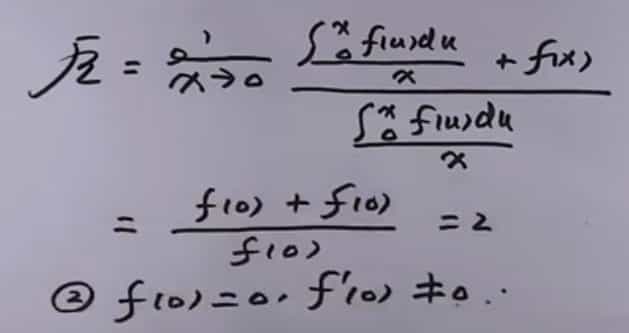 原 = lim x→0 (∫₀ˣ f(u)du / x + f(x)) / (∫₀ˣ f(u)du / x)
= (f(0) + f(0)) / f(0) = 2
② f(0)=0, f'(0)≠0..